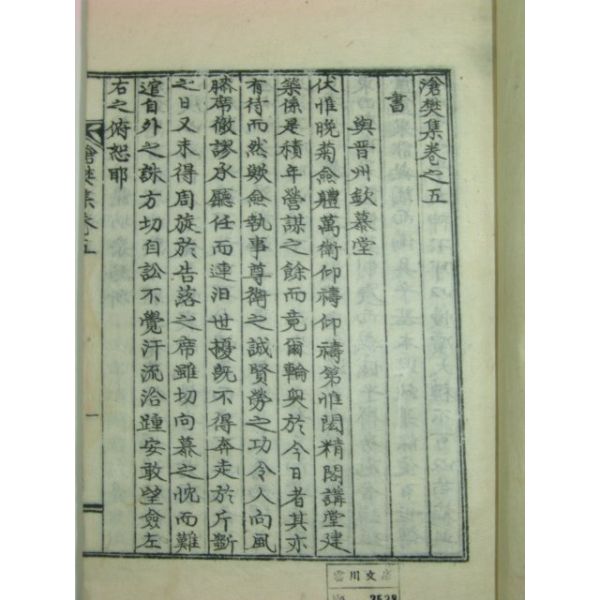 滄樊集卷之五
書
與晋州欽慕堂
伏惟晩菊僉體萬衛仰禱仰禱第惟閎精閣講堂建
築係是積年營謀之餘而竟爾輪奐於今日者其亦
有待而然歟僉執事尊衛之誠賢勞之功令人向風
勝席儆謬承廳任而連汨世擾旣不得奔走於斤斲
之日又未得周旋於告落之席雖切向慕之忱而難
逭自外之誅方切自訟不覺汗流沿踵安敢望僉左
右之俯恕耶
滄樊集卷五
一
雲川文庫
3538